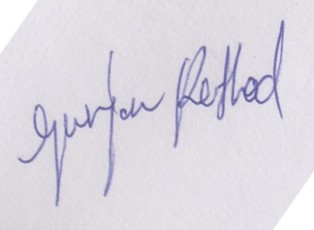 Gunjan Rathod